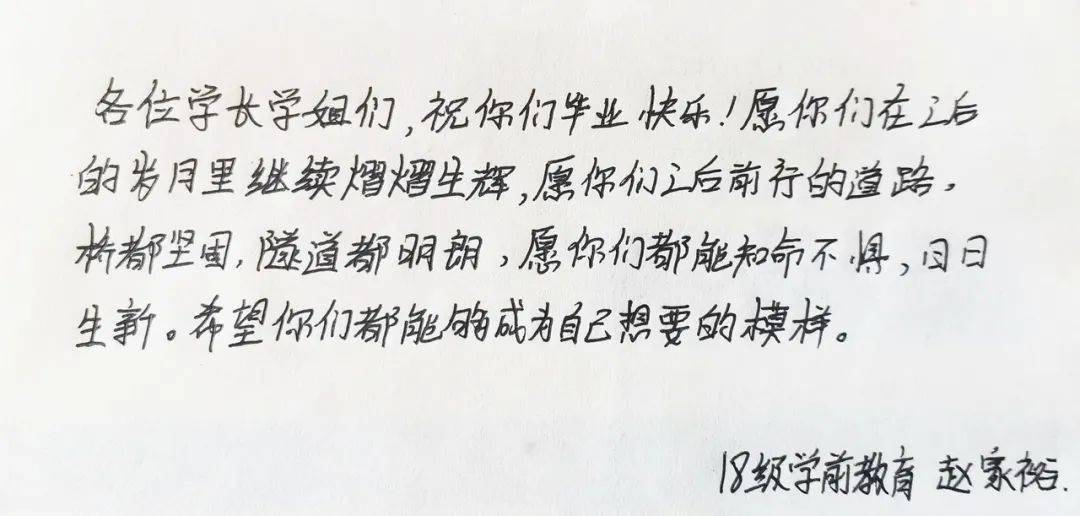 各位学长学姐们,祝你们毕业快乐!愿你们在之后
的岁月里继续熠熠生辉,愿你们之后前行的道路,
桥都坚固,隧道都明朗,愿你们都能知命不惧,日日
生新。希望你们都能够成为自己想要的模样。
18级学前教育 赵家裕.